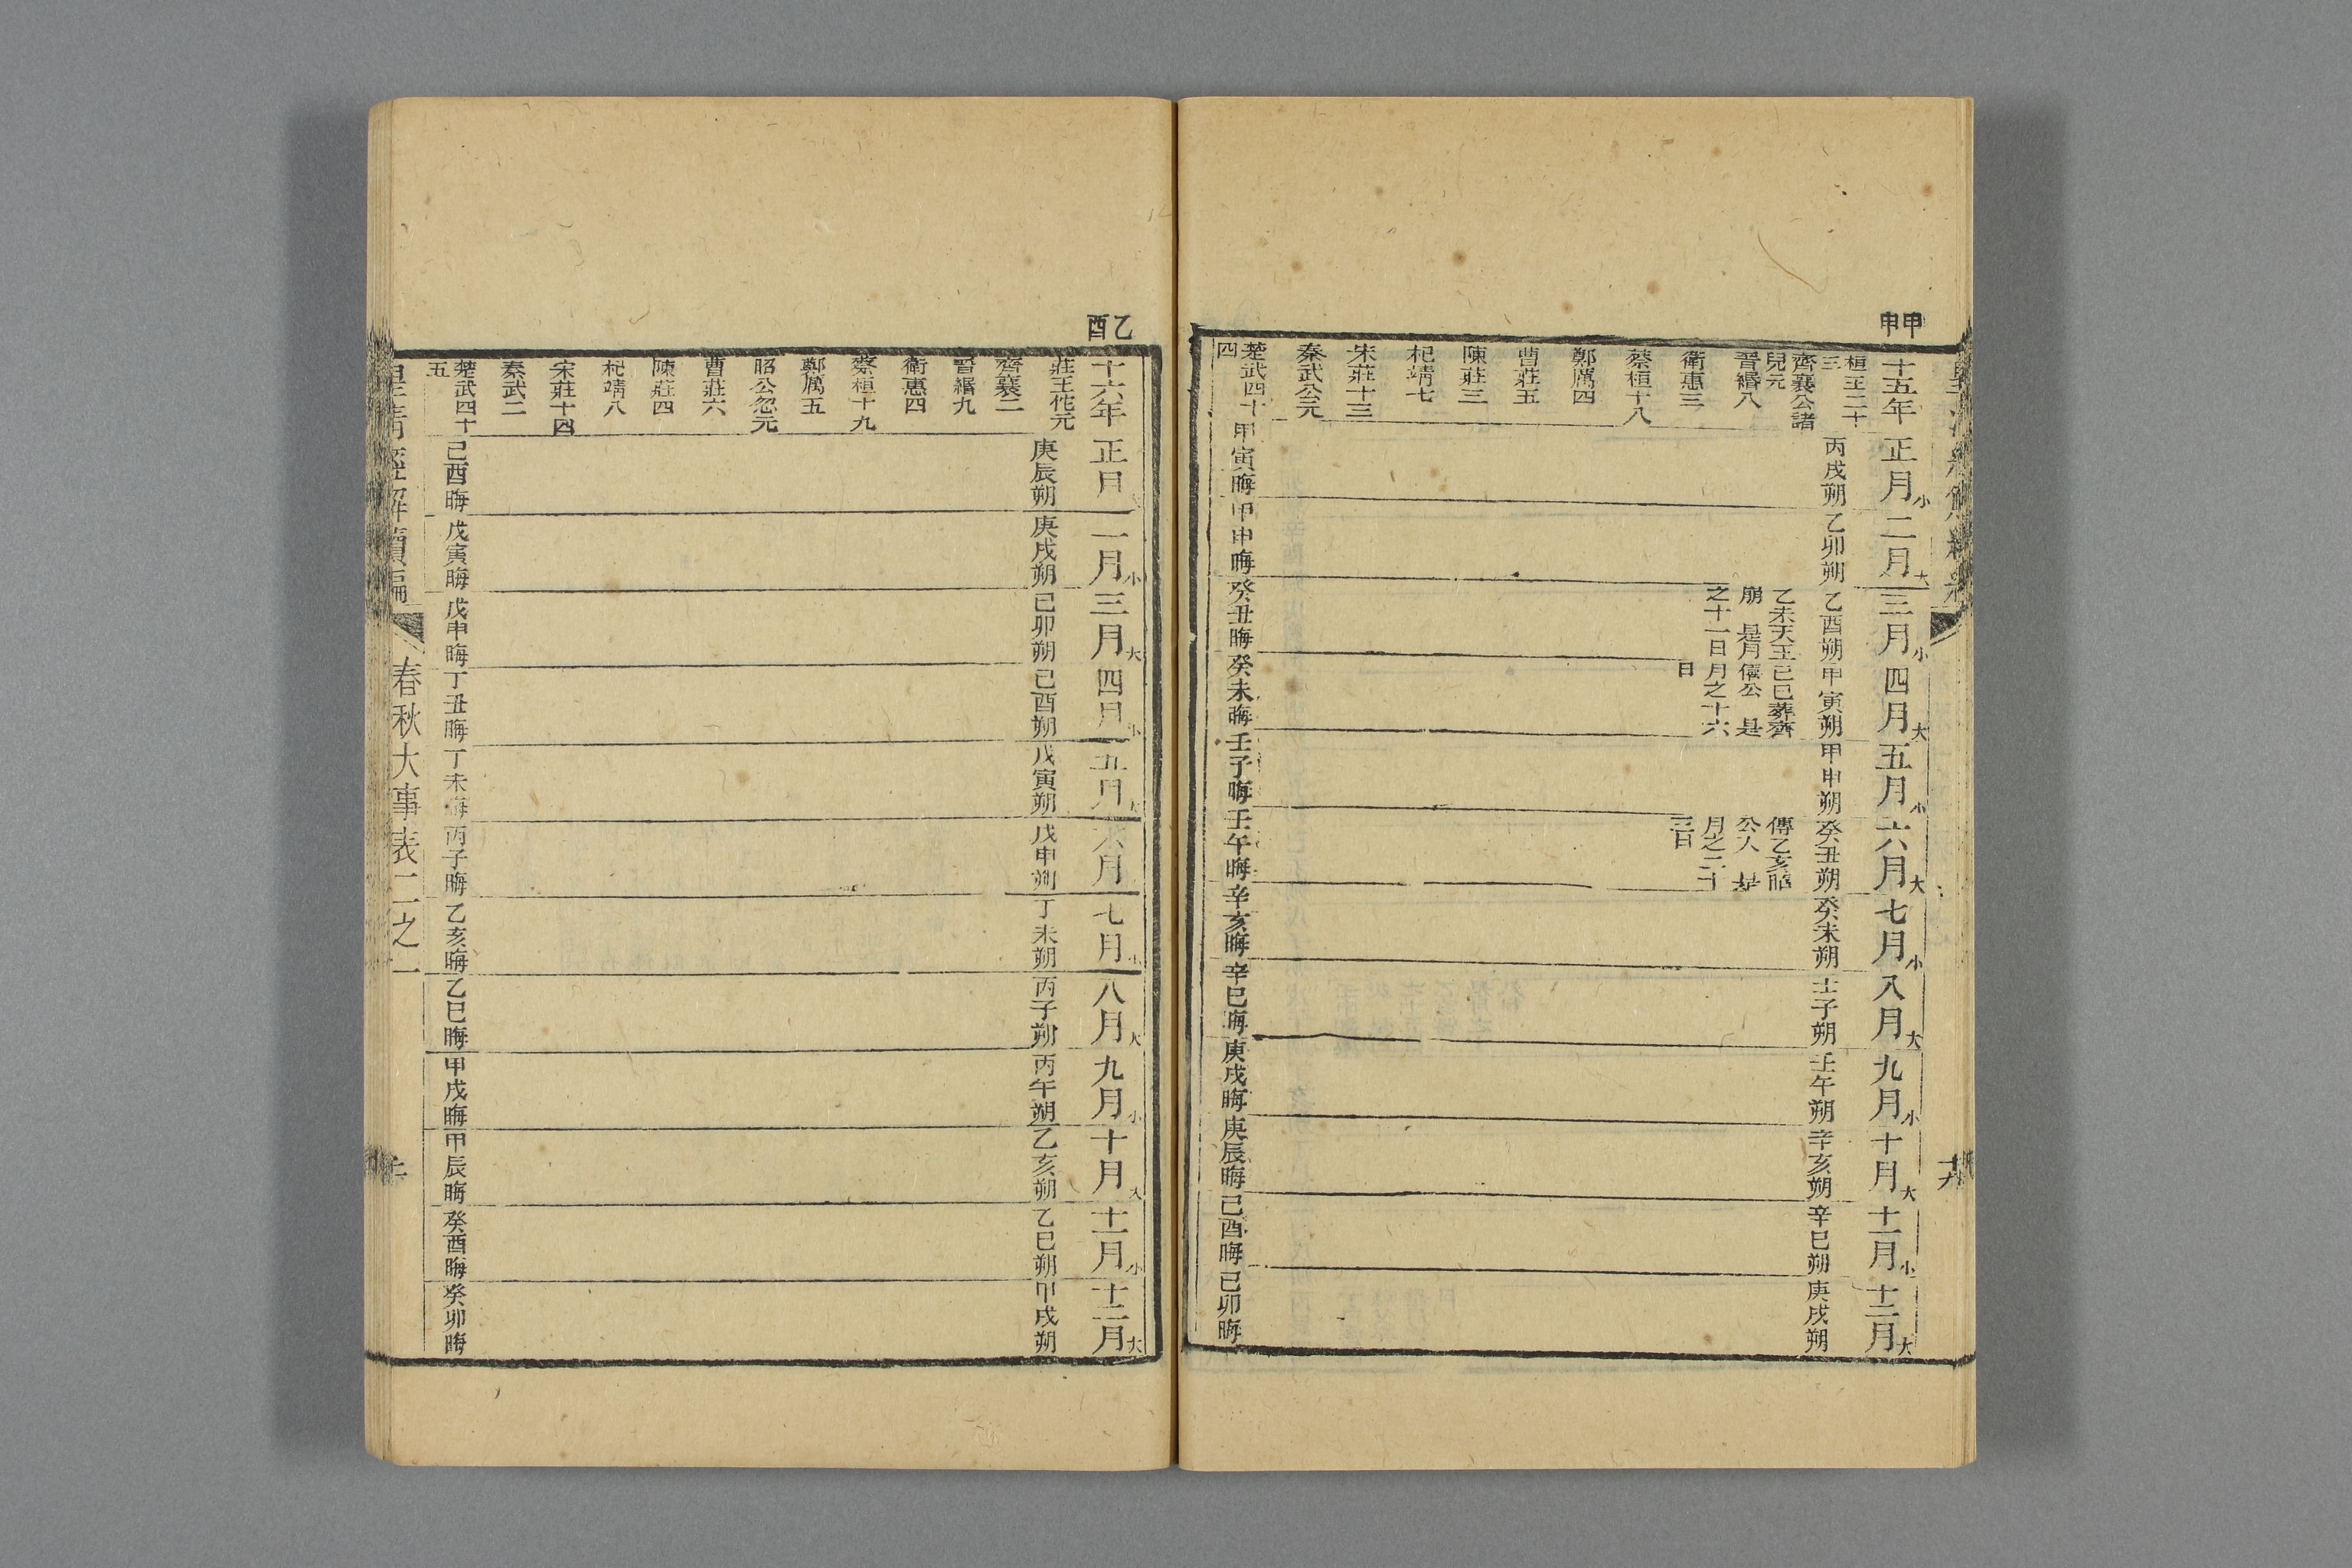 皇清經解續編
十六
甲申
十五年
桓王二十
三
齊襄公諸
兒元
晉緡八
衛惠三
蔡桓十八
鄭厲四
曹莊五
陳莊三
杞靖七
宋莊十三
秦武公元
楚武四十
四
正月小
丙戌朔
甲寅晦
二月大
乙卯朔
甲申晦
三月小
乙酉朔
乙未天王
崩 是月
之十一日
癸丑晦
四月大
甲寅朔
己巳葬齊
僖公 是
月之十六
日
癸未晦
五月小
甲申朔
壬子晦
六月大
癸丑朔
傳乙亥昭
公入 是
月之二十
三日
壬午晦
七月小
癸未朔
辛亥晦
八月大
壬子朔
辛巳晦
九月小
壬午朔
庚戌晦
十月大
辛亥朔
庚辰晦
十一月小
辛巳朔
己酉晦
十二月大
庚戌朔
己卯晦
乙酉
十六年
莊王佗元
齊襄二
晉緡九
衛惠四
蔡桓十九
鄭厲五
昭公忽元
曹莊六
陳莊四
杞靖八
宋莊十四
秦武二
楚武四十
五
正月大
庚辰朔
己酉晦
二月小
庚戌朔
戊寅晦
三月大
己卯朔
戊申晦
四月小
己酉朔
丁丑晦
五月大
戊寅朔
丁未晦
六月
戊申朔
丙子晦
七月小
丁未朔
乙亥晦
八月大
丙子朔
乙巳晦
九月小
丙午朔
甲戌晦
十月大
乙亥朔
甲辰晦
十一月小
乙巳朔
癸酉晦
十二月大
甲戌朔
癸卯晦
皇清經解續編
春秋大事表二之一